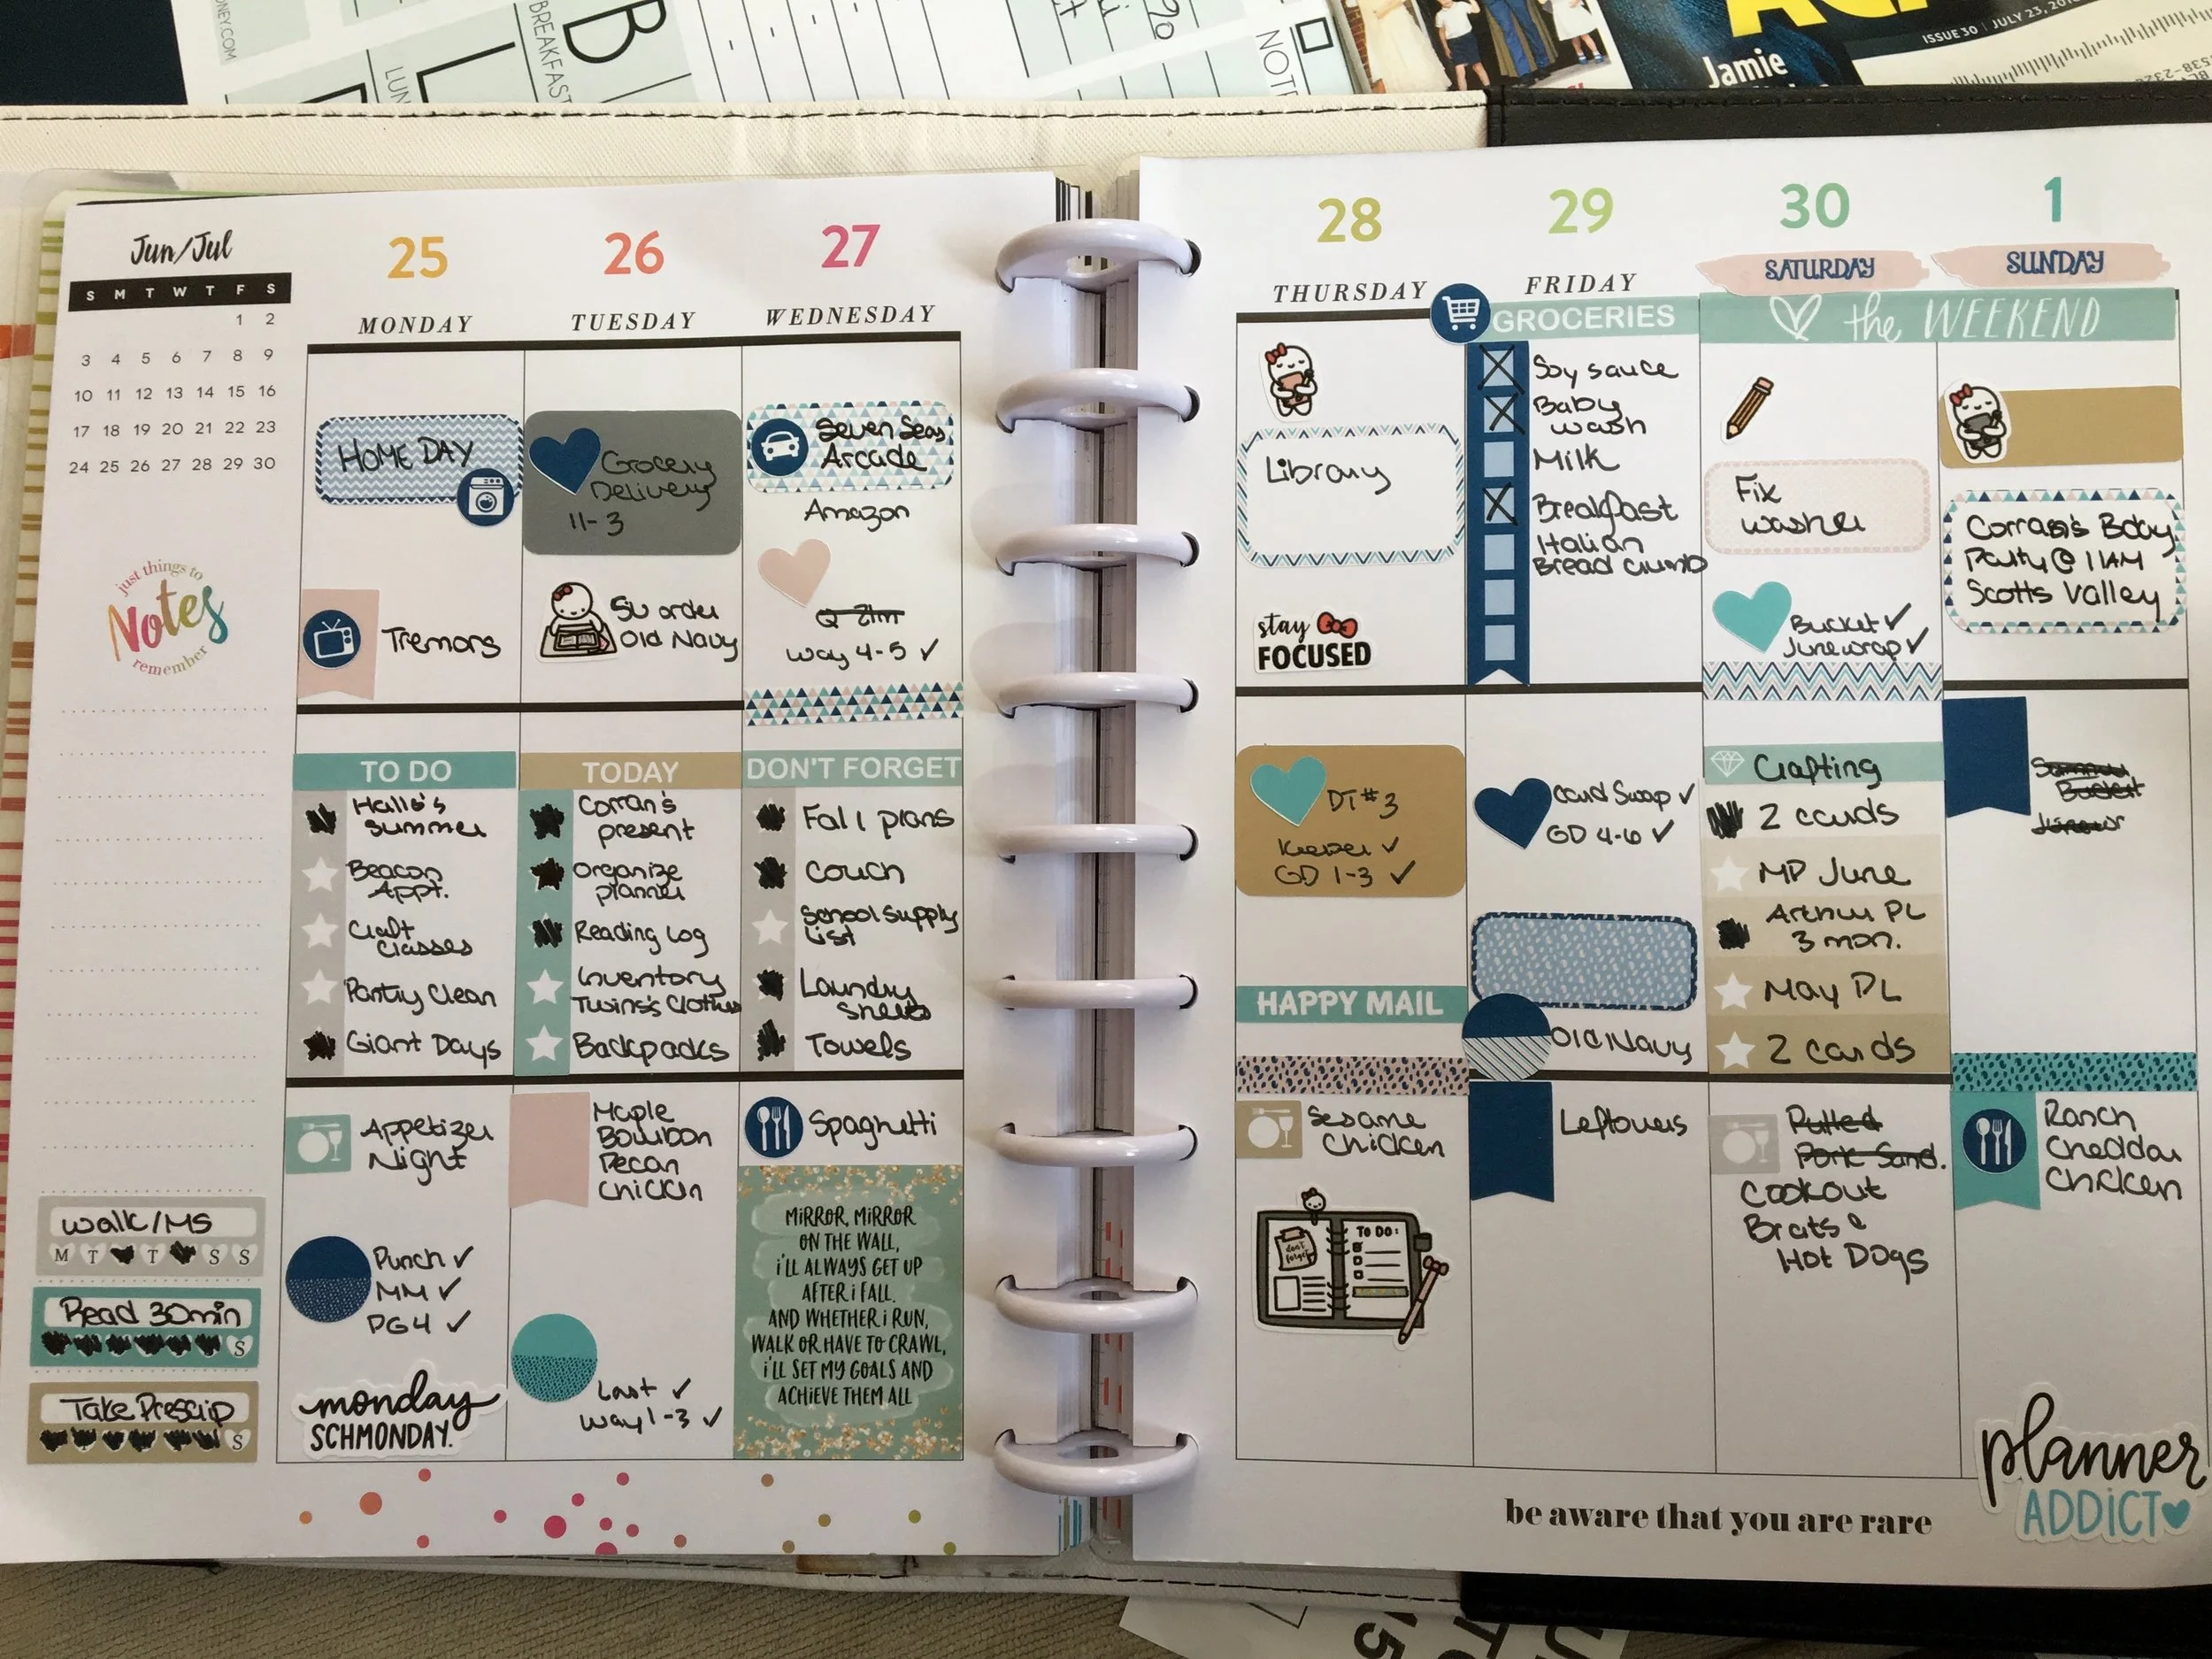 NEY.COM
BREAKFAST
B
LUN
L
NOTE
ISSUE 30 | JULY 23, 201
Jamie
Jun/Jul
S M T W T F S
1 2
3 4 5 6 7 8 9
10 11 12 13 14 15 16
17 18 19 20 21 22 23
24 25 26 27 28 29 30
just things to
Notes
remember
walk/MS
M T T S S
Read 30min
S
Take Prescrip
S
25
MONDAY
HOME DAY
Tremors
TO DO
Halle's
summer
Beacon
Appt.
Craft
Classes
Pantry Clean
Giant Days
Appetizer
Night
Punch ✓
MM ✓
PG4 ✓
monday
SCHMONDAY.
26
TUESDAY
Grocery
Delivery
11-3
SU order
Old Navy
TODAY
Corran's
present
Organize
planner
Reading Log
Inventory
Twins's Clothes
Backpacks
Maple
Bourbon
Pecan
Chicken
Last ✓
Way 1-3 ✓
27
WEDNESDAY
Seven Seas
Arcade
Amazon
Way 4-5 ✓
DON'T FORGET
Fall plans
Couch
School Supply
List
Laundry
Sheets
Towels
Spaghetti
MIRROR, MIRROR
ON THE WALL,
I'LL ALWAYS GET UP
AFTER I FALL.
AND WHETHER I RUN,
WALK OR HAVE TO CRAWL,
I'LL SET MY GOALS AND
ACHIEVE THEM ALL
28
THURSDAY
Library
stay
FOCUSED
DT #3
Keeper ✓
GD 1-3 ✓
HAPPY MAIL
Sesame
Chicken
don't
forget
TO DO:
29
FRIDAY
GROCERIES
Soy sauce
Baby
wash
Milk
Breakfast
Italian
Bread crumb
Card Swap ✓
GD 4-6 ✓
Old Navy
Leftovers
30
SATURDAY
the WEEKEND
Fix
washer
Bucket ✓
June wrap ✓
Crafting
2 cards
MP June
Arthur PL
3 mon.
May PL
2 cards
Pulled
Pork Sand.
Cookout
Brats &
Hot Dogs
1
SUNDAY
Corran's Bday
Party @ 11AM
Scotts Valley
Ranch
Cheddar
Chicken
be aware that you are rare
planner
ADDICT